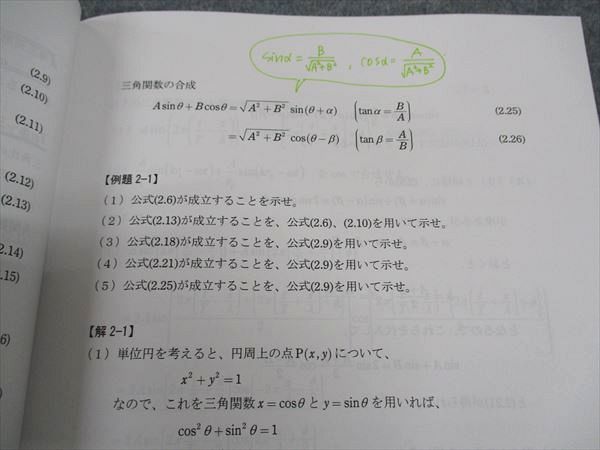 sinα = B/√A²+B² , cosα = A/√A²+B²
三角関数の合成
A sin θ + B cos θ = √A² + B² sin(θ + α) (tan α = B/A) (2.25)
= √A² + B² cos(θ − β) (tan β = A/B) (2.26)
【例題 2-1】
(1) 公式(2.6)が成立することを示せ。
(2) 公式(2.13)が成立することを、公式(2.6)、(2.10)を用いて示せ。
(3) 公式(2.18)が成立することを、公式(2.9)を用いて示せ。
(4) 公式(2.21)が成立することを、公式(2.9)を用いて示せ。
(5) 公式(2.25)が成立することを、公式(2.9)を用いて示せ。
【解 2-1】
(1) 単位円を考えると、円周上の点 P(x, y) について、
x² + y² = 1
なので、これを三角関数 x = cos θ と y = sin θ を用いれば、
cos² θ + sin² θ = 1
(2.9)
(2.10)
(2.11)
(2.12)
(2.13)
2.14)
.15)
6)